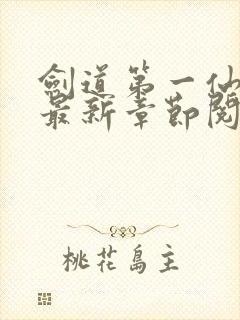 劍道第一仙
最新章節閱
桃花島主